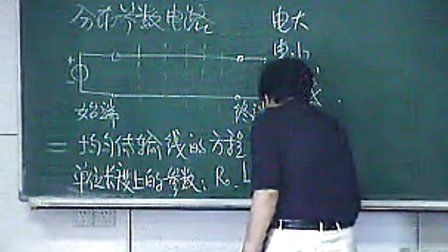 分布参数电路
电大
电小
始端 终端
二 均匀传输线的方程
单位长度上的参数: R₀. L